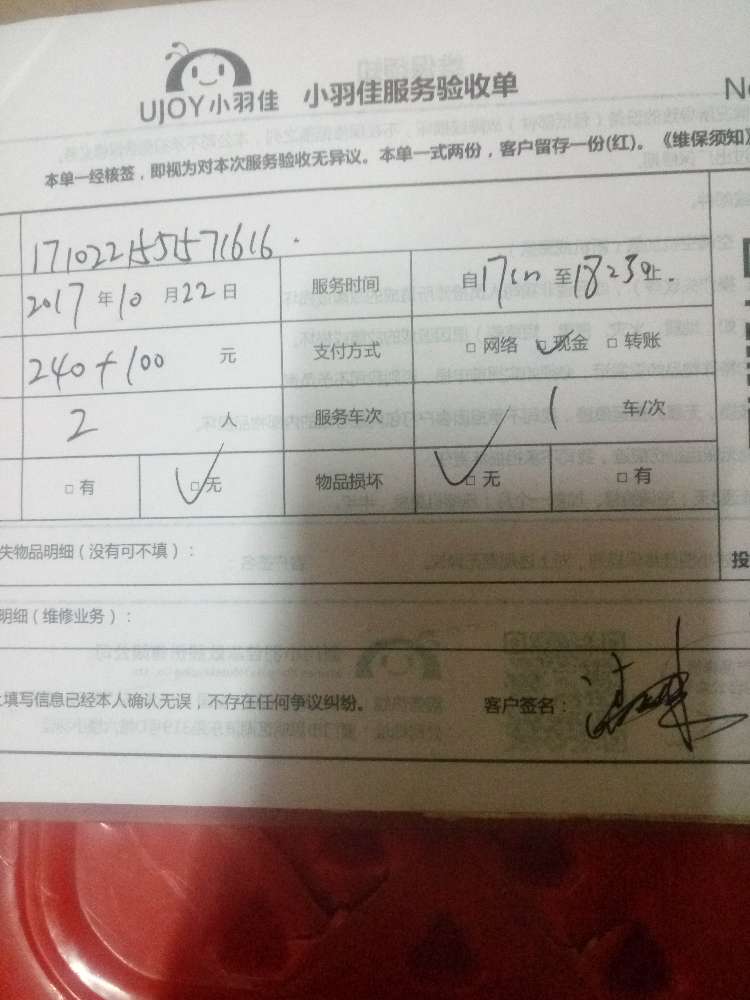 UJOY小羽佳 小羽佳服务验收单 No
本单一经核签，即视为对本次服务验收无异议。本单一式两份，客户留存一份(红)。《维保须知》
171022155571616
2017年10月22日 服务时间 自17 至18 止
240+100 元 支付方式 □网络 □现金 □转账
2 人 服务车次 1 车/次
□有 □无 物品损坏 □无 □有
失物品明细（没有可不填）： 投
明细（维修业务）：
上填写信息已经本人确认无误，不存在任何争议纠纷。 客户签名：